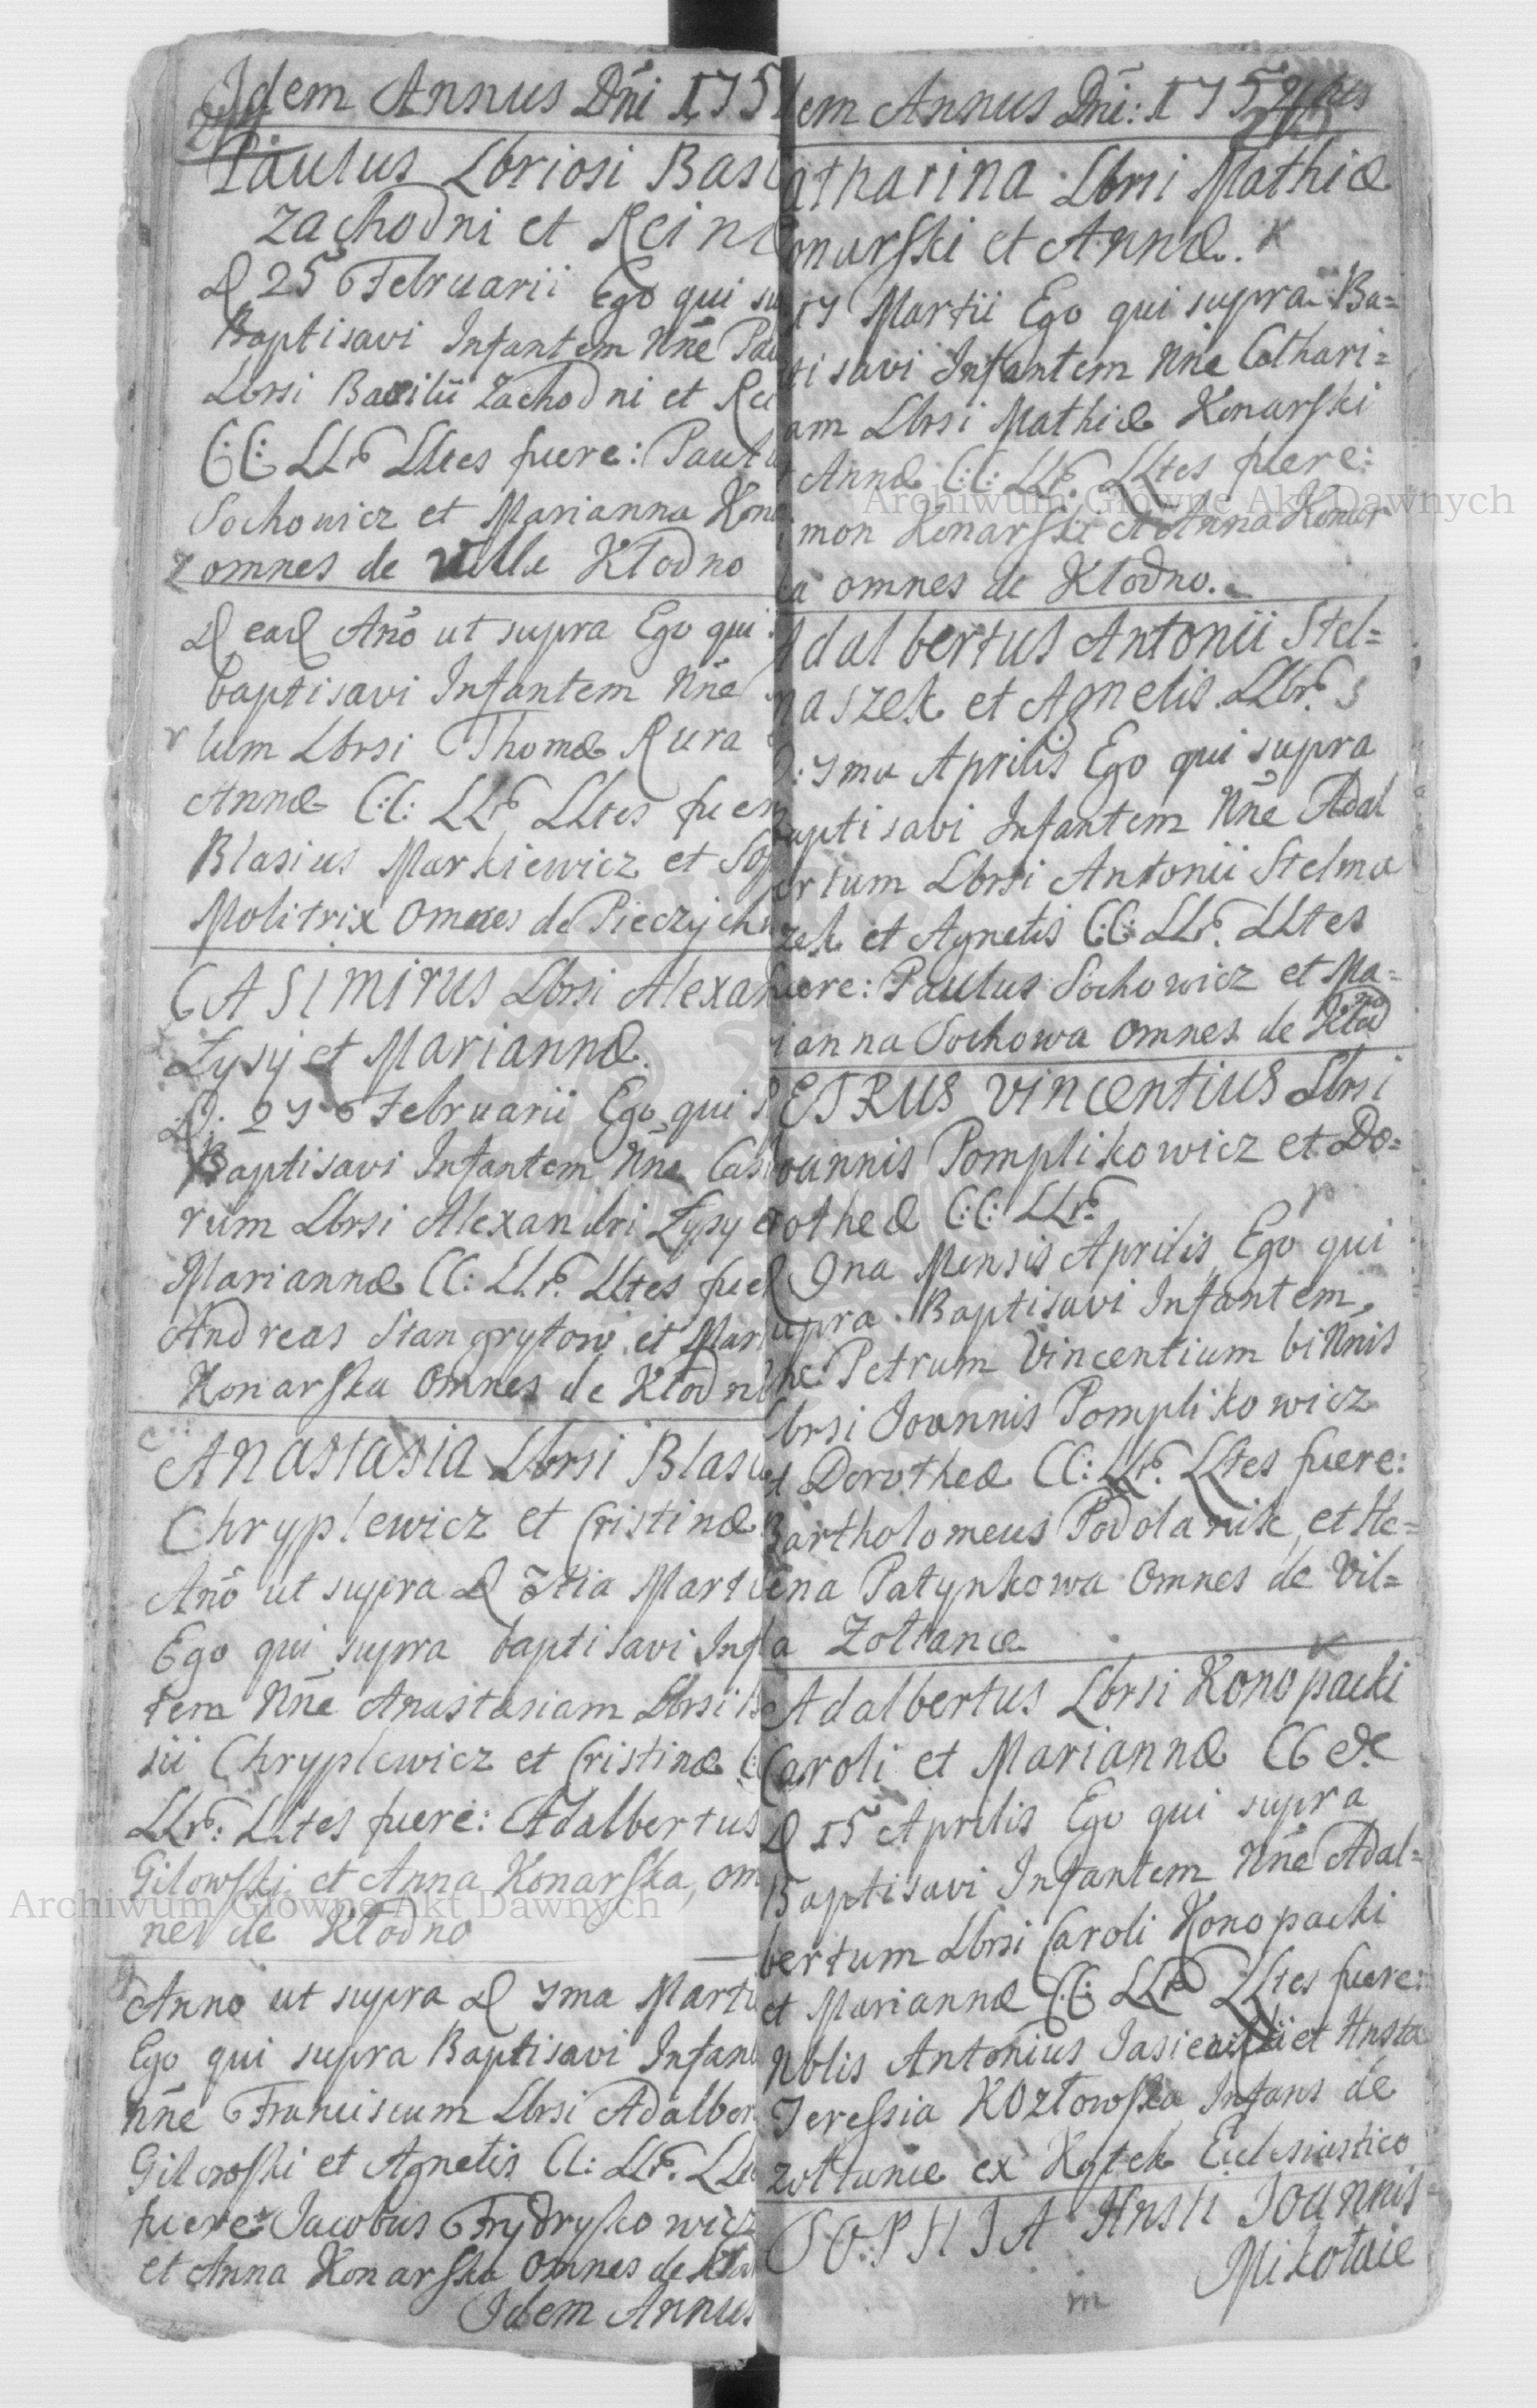 Idem Annus Dni 175
Paulus Lbriosi Basi
Zachodni et Rein
D 25 Februarii Ego qui su
Baptisavi Infantem Nne Pau
Lbrsi Basilii Zachodni et Rei
CC: LLr LLtes fuere: Paulu
Sochowicz et Marianna Kon
omnes de Ville Kłodno
D ead Ano ut supra Ego qui
baptisavi Infantem Nne
lum Lbrsi Thomæ Rura
Annæ C:C: LLr LLtes fuer
Blasius Markiewicz et Sop
Molitrix Omnes de Pieczych
CASIMIRUS Lbrsi Alexan
Łysy et Mariannæ.
D. 27 Februarii Ego qui s
Baptisavi Infantem Nne Casi
rum Lbrsi Alexandri Łysy e
Mariannæ CC: LLr. LLtes fue
Andreas Stangrytow et Mar
Konarska Omnes de Kłodn
Anastasia Lbrsi Blasi
Chryplewicz et Cristinæ
Ano ut supra D 3tia Marti
Ego qui supra baptisavi Inf
tem Nne Anastasiam Lbrsi
sii Chryplewicz et Cristinæ C
LLr: LLtes fuere: Adalbertus
Gilowski et Anna Konarska, om
nes de Kłodno
Anno ut supra D 7ma Marti
Ego qui supra Baptisavi Infan
Nne Franciscum Lbrsi Adalber
Gilowski et Agnetis CC: LLr. LLt
fuere: Jacobus Frydrysko wicz
et Anna Konarska Omnes de Kło
Idem Annus
dem Annus Dni: 175
atharina Lbrsi Mathiæ
onarski et Annæ.
17 Martii Ego qui supra Ba=
ti savi Infantem Nne Cathari=
am Lbrsi Mathiæ Konarski
Annæ C:C: LLr. LLtes fuere:
mon Konarski et Anna Konar
ka omnes de Kłodno.
Adalbertus Antonii Stel=
maszek et Agnetis LLbr. s
D: 7ma Aprilis Ego qui supra
aptisavi Infantem Nne Adal
ertum Lbrsi Antonii Stelma
zek et Agnetis CC: LLr. LLtes
uere: Paulus Sochowicz et Ma=
rianna Sochowa omnes de Kłodno
PETRUS Vincentius Lbrsi
oannis Pomplikowicz et Do=
rotheæ C:C: LLr.
D 9na Mensis Aprilis Ego qui
upra Baptisavi Infantem,
ne Petrum Vincentium biNnis
Lbrsi Joannis Pomplikowicz
et Dorotheæ CC: LLr. LLtes fuere:
Bartholomeus Podolanik, et He=
ena Patynkowa Omnes de Vil=
a Żołtance
Adalbertus Lbrsi Konopacki
Caroli et Mariannæ CC &c
D 15 Aprilis Ego qui supra
Baptisavi Infantem Nne Adal=
bertum Lbrsi Caroli Konopacki
et Mariannæ C:C: LLr LLtes fuere:
Nblis Antonius Jasienski et Hnsta
Teressia Kozłowska, Infans de
zołtance ex Kątek Eclesiastico
SOPHIA Hnsti Joannis
Mikołaie